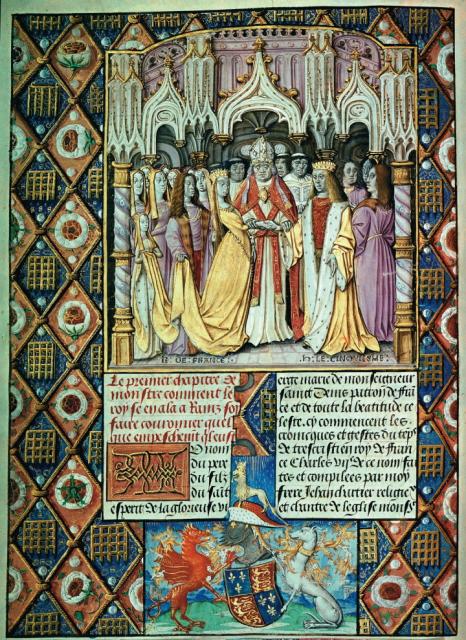 K. DE FRANCE.
h. LE CINQVIEME.
Le premier chapitre de
mon stre comment le
roy se en ala a Rainz soy
faire couronner quel
que empeschemt q̃ leust
Ou nom
du pere
du filz
du saīt
esperit de la glorieuse vi
erge marie de monseigneur
sainct denis patron de frā
ce et de toute la beatitude ce
leste. cy commencent les
cronicques et gestes du tẽps
de trescrestien roy de fran
ce Charles vijᵉ de ce nom fai
tes et compilees par moy
frere Jehan chartier religie
et chantre de leglise monsʳ